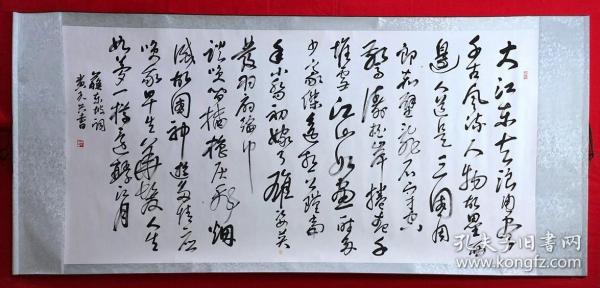 大江东去浪淘尽
千古风流人物故垒西
边人道是三国周
郎赤壁乱石穿空
惊涛拍岸捲起千
堆雪江山如画一时多
少豪杰遥想公瑾当
年小乔初嫁了雄姿英
发羽扇纶巾
谈笑间樯橹灰飞烟
灭故国神游多情应
笑我早生华发人生
如梦一樽还酹江月
苏东坡词
孔夫子旧书网
www.kongfz.com